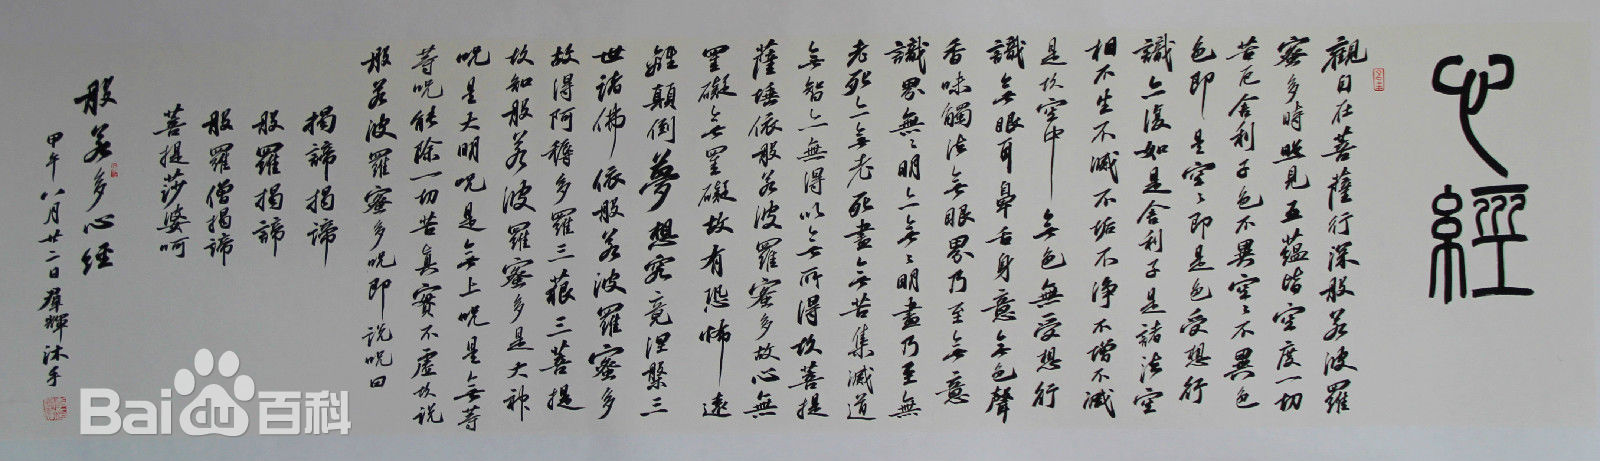 心經
觀自在菩薩行深般若波羅
蜜多時照見五蘊皆空度一切
苦厄舍利子色不異空〻不異色
色即是空〻即是色受想行
識亦復如是舍利子是諸法空
相不生不滅不垢不淨不增不滅
是故空中無色無受想行
識無眼耳鼻舌身意無色聲
香味觸法無眼界乃至無意
識界無〻明亦無〻明盡乃至無
老死亦無老死盡無苦集滅道
無智亦無得以無所得故菩提
薩埵依般若波羅蜜多故心無
罣礙無罣礙故有恐怖遠
離顛倒夢想究竟涅槃三
世諸佛依般若波羅蜜多
故得阿耨多羅三藐三菩提
故知般若波羅蜜多是大神
呪是大明呪是無上呪是無等
等呪能除一切苦真實不虛故說
般若波羅蜜多呪即說呪曰
揭諦揭諦
般羅揭諦
般羅僧揭諦
菩提莎婆呵
般若多心经
甲午八月廿二日群輝沐手
Bai du 百科